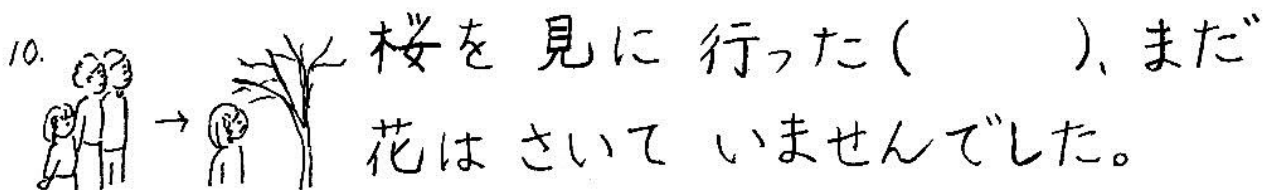 10. 桜を 見に 行った(　　　)、まだ
花は さいて いませんでした。